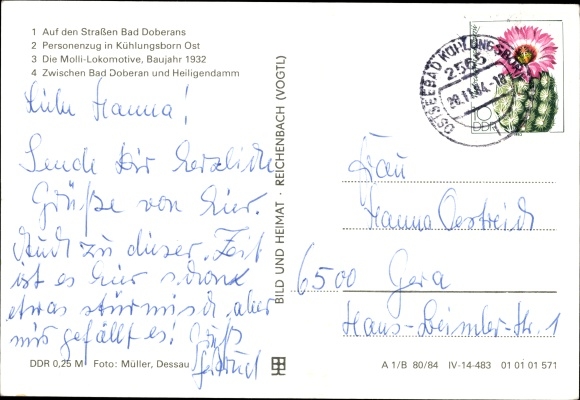 1 Auf den Straßen Bad Doberans
2 Personenzug in Kühlungsborn Ost
3 Die Molli-Lokomotive, Baujahr 1932
4 Zwischen Bad Doberan und Heiligendamm
Liebe Hanna!
Sende Dir herzliche
Grüße von hier.
Auch zu dieser Zeit
ist es hier schon
etwas stürmisch, aber
mir gefällt es! Gruß
BILD UND HEIMAT · REICHENBACH (VOGTL)
OSTSEEBAD KÜHLUNGSBORN
2565
28.11.84-18
10
DDR
Frau
Hanna Oestreich
6500 Gera
Hans-Beimler-Str. 1
DDR 0,25 M Foto: Müller, Dessau
A 1/B 80/84 IV-14-483 01 01 01 571